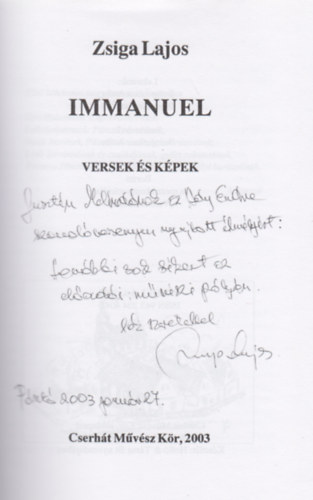 Zsiga Lajos
IMMANUEL
VERSEK ÉS KÉPEK
az Ady Endre
szavalóversenyen nyújtott élményért:
további sok sikert az
előadói, művészi pályán.
szeretettel
Zsiga Lajos
2003 június 27.
Cserhát Művész Kör, 2003